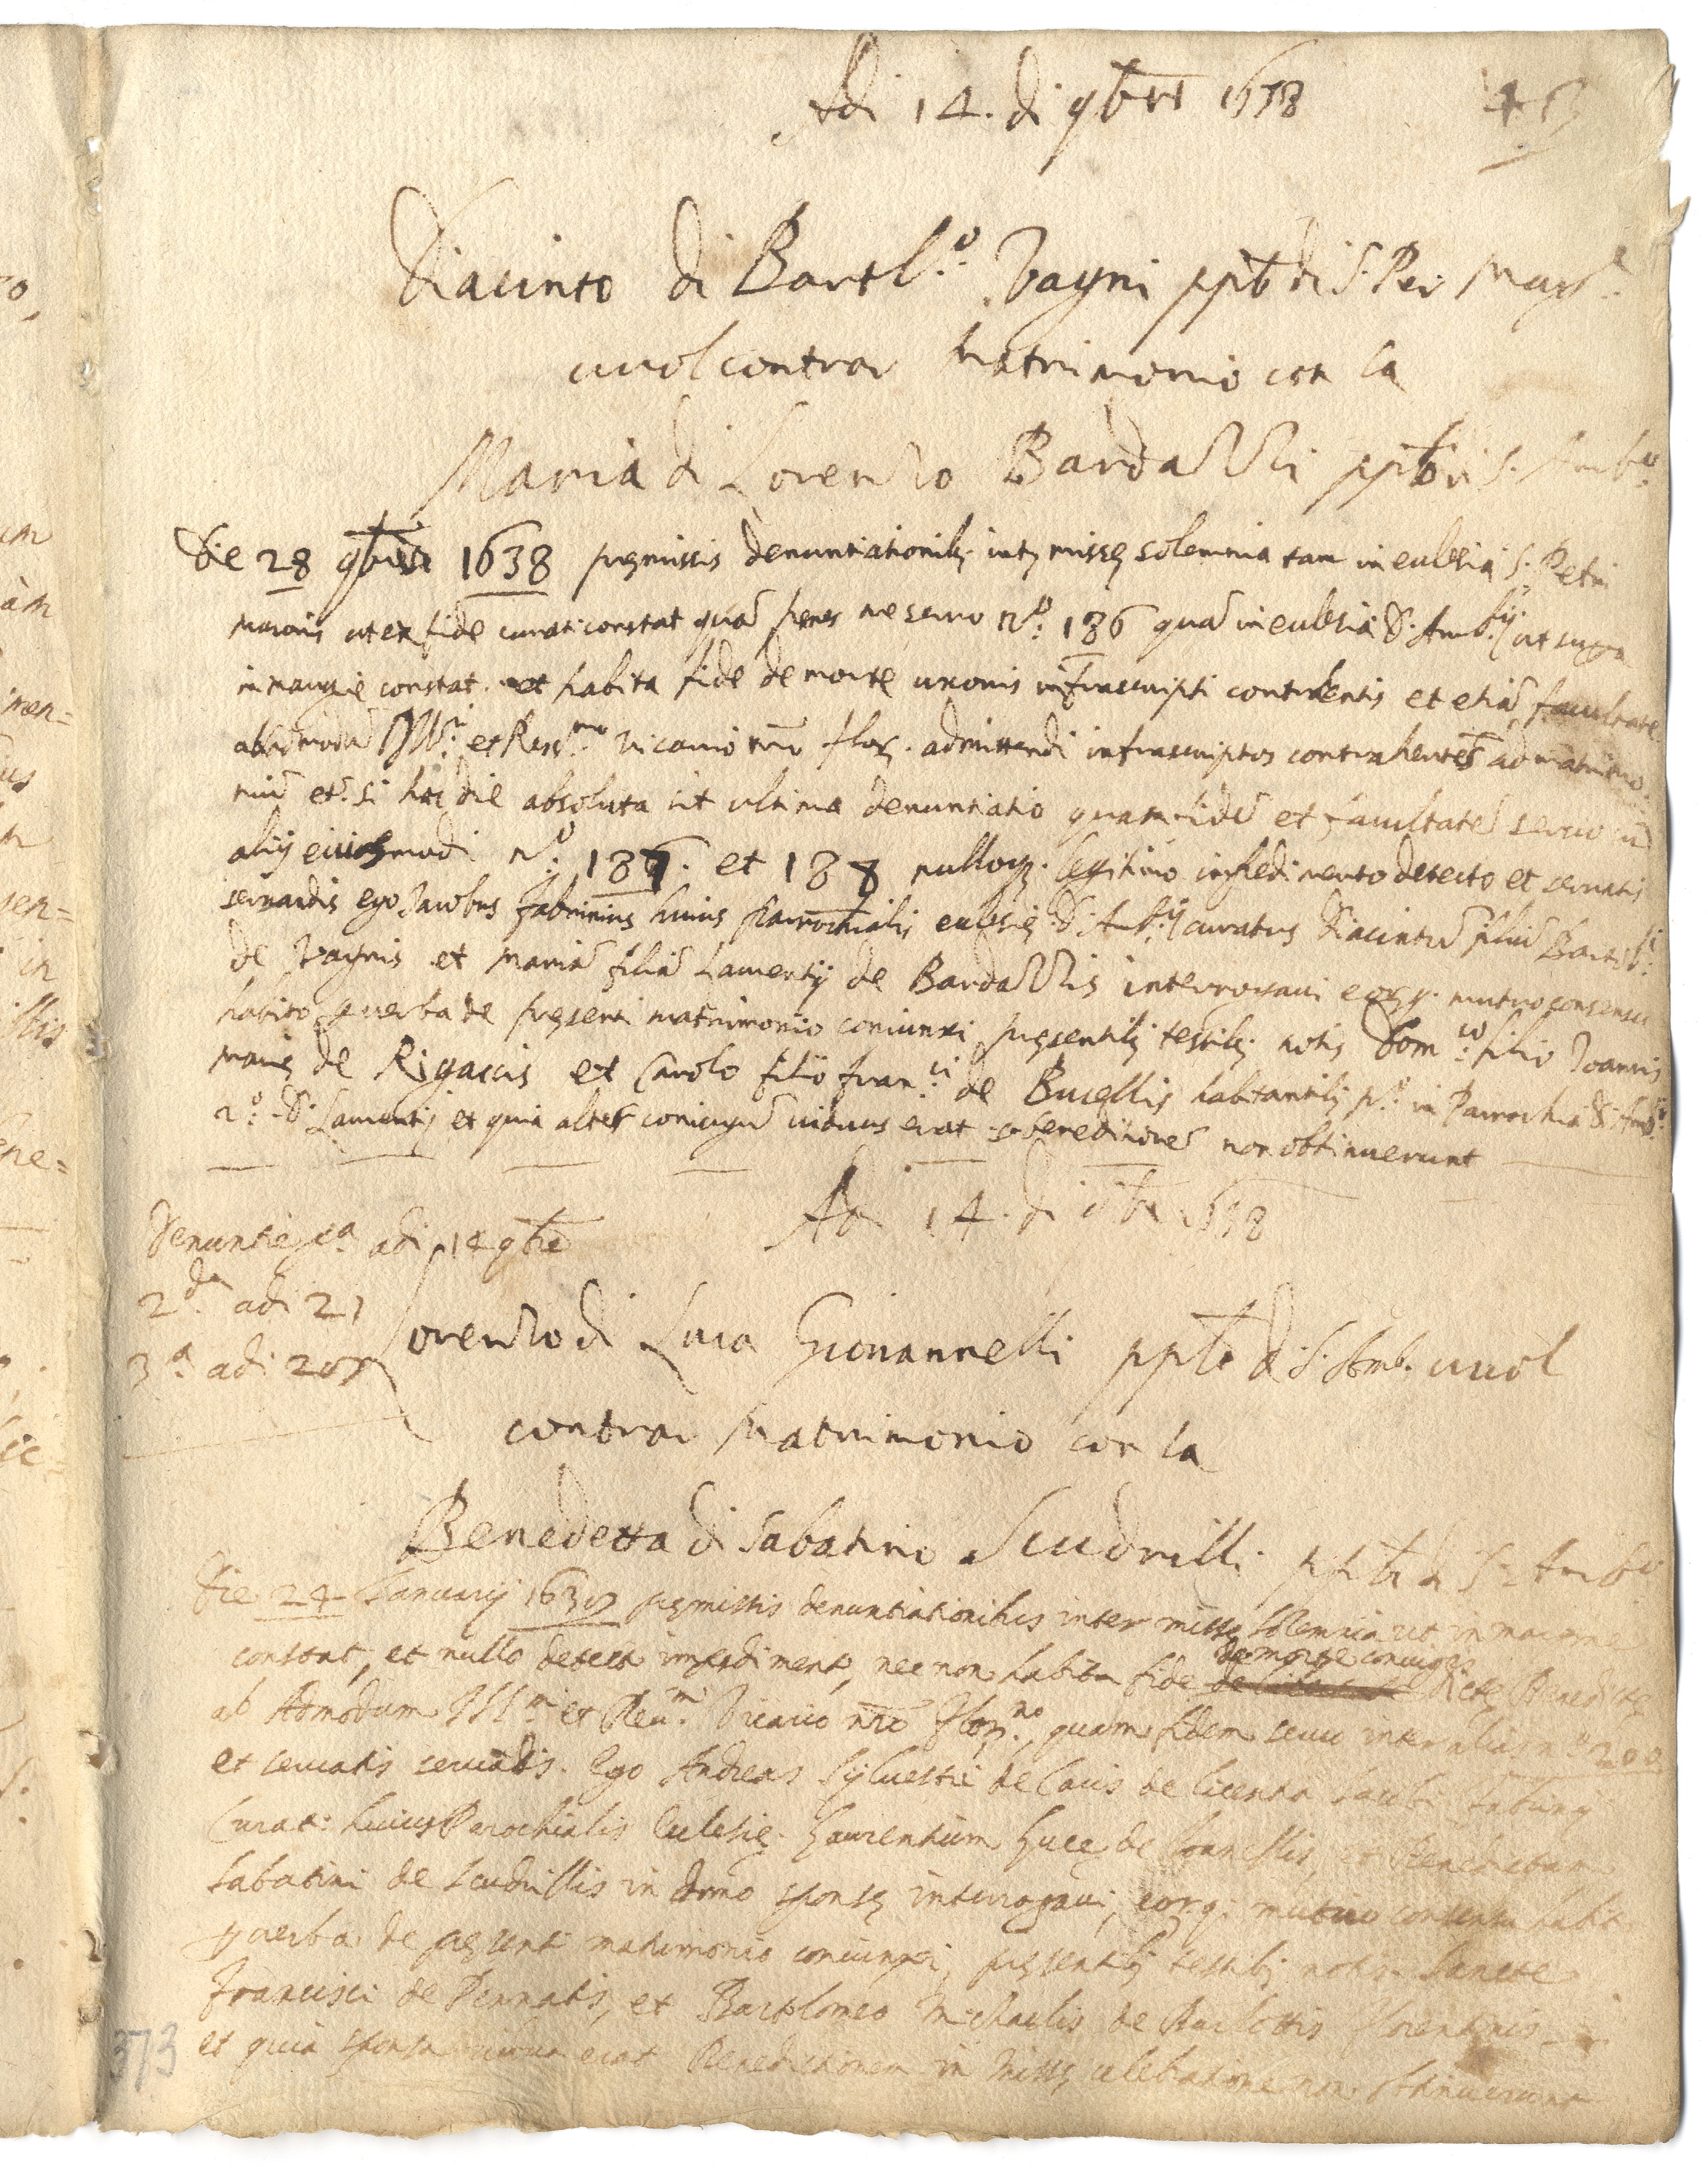 Adi 14. di 9bre 1638
Giacinto di Bartl.o Vagni ppto di S. Pier Magg.e
vuol contrar Matrimonio con la
Maria di Lorenzo Bardazzi ppto di S. Amb.o
Die 28 9bris 1638 premissis denuntiationib. int. misse solemnia tam in eclesia S. Petri
maioris ut ex fide curati constat qua penes me servo N.o 186 qua in eclesia S. Amb.ij ut supra
in margie constat. et habita fide de morte uxoris infrascripti contrhentis et etia facultate
ab admodu Ill.ri et Rev.mo Vicario nro flor. admittendi infrascriptos contrahentes ad matrimo
niu et. si hac die absoluta sit ultima denuntiatio quam fide et facultate servo cu
alijs eiusmodi N.o 187. et 188 nulloq. legitimo inpedimento detecto et servatis
servandis ego Jacobus Fabrinius huius parrochialis eclesie S. Amb.ij curatus Giacintu filiu Bartol.i
de Vagnis et Maria filia Laurentij de Bardazzis interrogavi eorq. mutuo consensu
habito p verba de presenti matrimonio coniunxi presentib. testib. notis Dom.co filio Joannis
Marie de Rigaccis et Carolo filio Fran.ci de Bucellis habitantib. p.o in Parrochia S. Amb.ij
2.o S. Laurentij et quia alter coniugu viduus erat beneditione non obtinuerunt
Adi 14. di 9bre 1638
Denuntie p.a adi 14 9bre
2.da adi 21
3.a adi 28
Lorenzo di Luca Giovannelli ppto di S. Amb. vuol
contrar Matrimonio con la
Benedetta di Sabatino Scudrilli ppto di S. Amb.o
Die 24 Januarij 1638 premissis denuntiationibus inter misse solemnia ut in margine
constat, et nullo detecto impedimento, nec non habita fide de morte coniugis dicte Benedicte
ab Admodum Ill.ri et Rev.mo Vicario nro Flor.no, quam fidem servo inter alias n.o 200
et servatis servadis. Ego Andreas Sylvestri de Cavis de licentia Jacobi Fabrinij
Curat: huius Parochialis Eclesie. Laurentium Luce de Joanellis, et Benedictam
Sabatini de Scudrillis in domo sponse interrogavi, eorq. mutuo consensu habito
p verba de presenti matrimonio coniunxi, presentib. testib. notis. Sancte
Francisci de Pennatis, et Bartolomeo Michaelis de Florentinis
et quia sponsa vidua erat Benedictionem in Misse celebratione non obtinuerunt
373